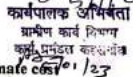 कार्यपालक अभियंता
ग्रामीण कार्य विभाग
कार्य प्रमंडल
mate cost 01/23